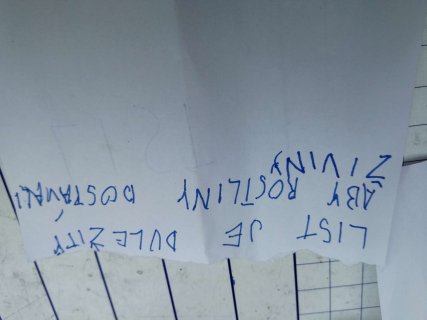 LIST JE DULEŽITÝ
ABY ROSTLINY DOSTÁVALI
ŽIVINY